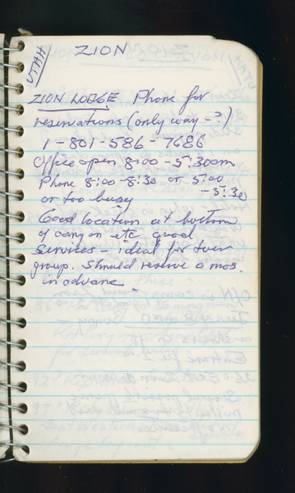 UTAH
ZION
ZION LODGE Phone for
reservations (only way - ?)
1-801-586-7686
Office open 8:00 - 5:30am
Phone 8:00-8:30 or 5:00
- 5:30
or too busy
Good location at bottom
of canyon etc good
services - ideal for tour
group. Should reserve 2 mos.
in advance